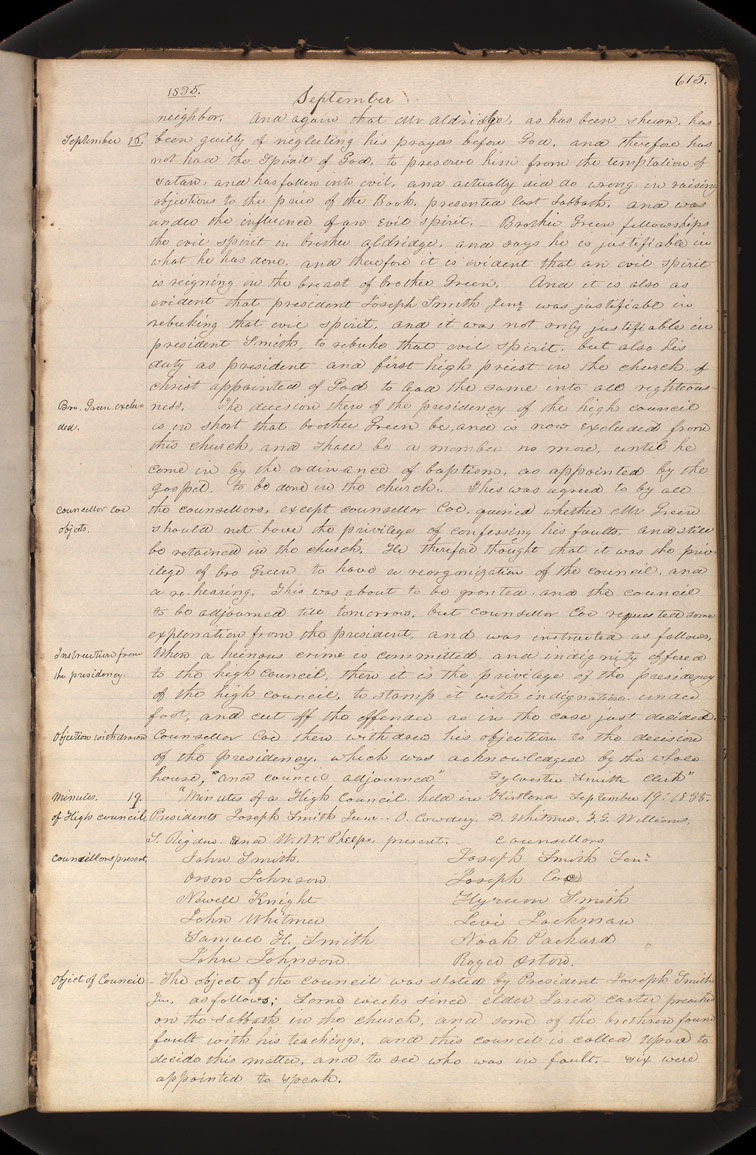 1835.
September
615.
neighbor. And again that Mr Aldridge, as has been shewn, has
September 16. been guilty of neglecting his prayers before God, and therefore has
not had the Spirit of God, to preserve him from the temptation of
satan, and has fallen into evil, and actually did do wrong in raising
objections to the price of the Book, presented last Sabbath, and was
under the influence of an evil spirit. - Brother Green fellowships
the evil spirit in brother aldridge, and says he is justifiable in
what he has done, and therefore it is evident that an evil spirit
is reigning in the breast of brother Green. And it is also as
evident that president Joseph Smith Junr. was justifiable in
rebuking that evil spirit, and it was not only justifiable in
president Smith, to rebuke that evil spirit, but also his
duty as president and first high priest in the church of
christ appointed of God to lead the same into all righteous-
Bro. Green exclu- ness. The decision then of the presidency of the high council
ded. is in short that brother Green be, and is now excluded from
this church, and shall be a member no more, until he
come in by the ordinance of baptism, as appointed by the
gospel, to be done in the church. This was agreed to by all
counsellor coe the counsellors, except counsellor Coe, queried whether Mr Green
objects. should not have the privilege of confessing his faults, and still
be retained in the church. He therefore thought that it was the priv-
ilege of bro Green to have a reorganization of the council, and
a re-hearing. This was about to be granted, and the council
to be adjourned till tomorrow, but counsellor Coe requested some
explanation from the president, and was instructed as follows,
Instruction from When a heinous crime is committed and indignity offered
the presidency. to the high council, then it is the privilege of the presidency
of the high council, to stamp it with indignation under
foot, and cut off the offender as in the case just decided.
Objection withdrawn Counsellor Coe then withdrew his objection to the decision
of the presidency, which was acknowledged by the whole
house, "and council adjourned" Sylvester Smith clerk"
Minutes. 19. "Minutes of a High Council, held in Kirtland September 19th. 1835.
of High council Presidents Joseph Smith Junr. O. Cowdery D. Whitmer, F. G. Williams,
S. Rigdon and W. W. Phelps, present. counsellors
councillors present John Smith. Joseph Smith Senr.
Orson Johnson Joseph Coe
Newell Knight Hyrum Smith
John Whitmer Levi Jackman
Samuel H. Smith Noah Packard
John Johnson Roger Orton.
Object of Council - The object of the council was stated by President Joseph Smith
Jun. as follows; Some weeks since elder Jared Carter preached
on the sabbath in the church, and some of the brethren found
fault with his teachings, and this council is called upon to
decide this matter, and to see who was in fault. - six were
appointed to speak.